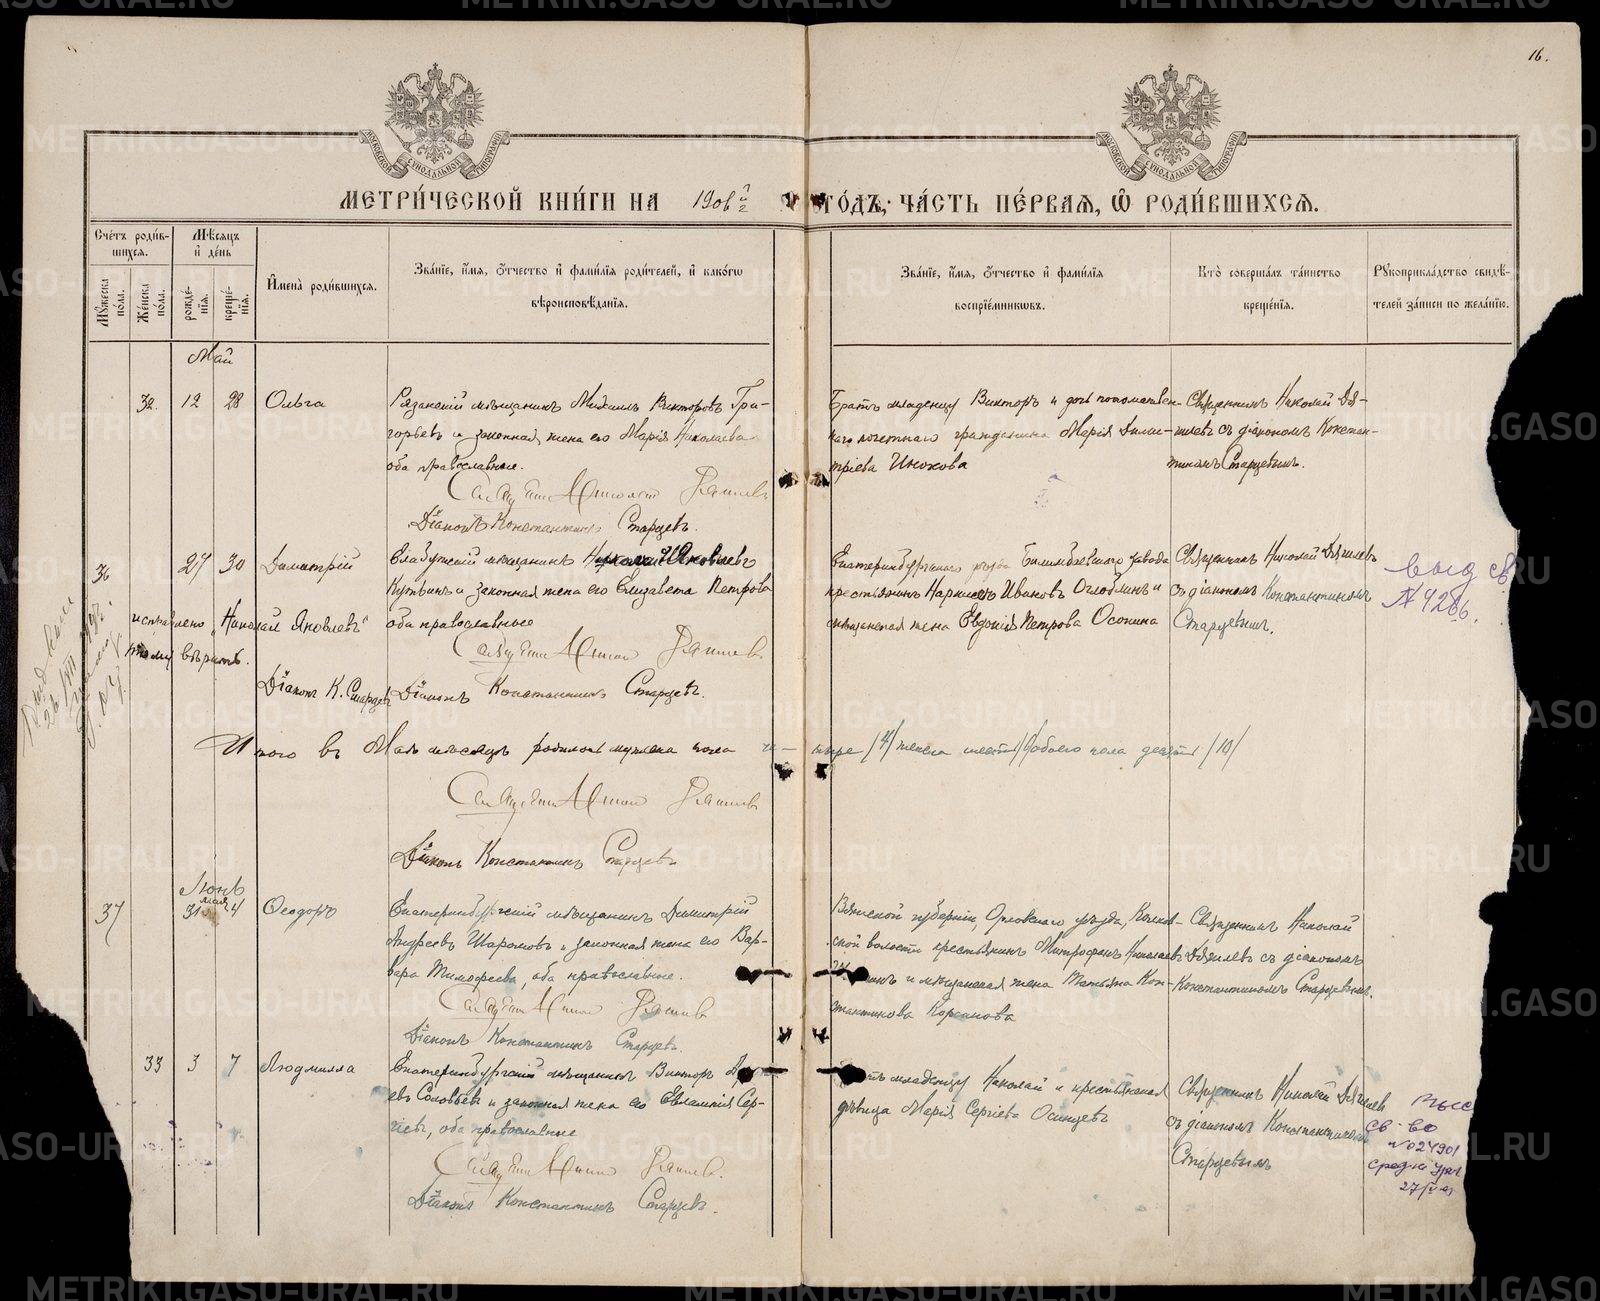 16.
МОСКОВСКОЙ СУНОДАЛЬНОЙ ТИПОГРАФІИ
МОСКОВСКОЙ СУНОДАЛЬНОЙ ТИПОГРАФІИ
МЕТРИ́ЧЕСКОЙ КНИ́ГИ НА 1906й ГО́ДЪ, ЧА́СТЬ ПЕ́РВАЯ, Ѡ РОДИ́ВШИХСЯ.
Сче́тъ роди́в-
шихся.
Му́жеска по́ла.
Же́нска по́ла.
Мѣ́сяцъ и де́нь
рожде́-
нія.
креще́-
нія.
И҆мена̀ роди́вшихся.
Зва́ніе, и҆́мя, ѻ҆́тчество и҆ фами́лія роди́телей, и҆ како́гѡ
вѣроисповѣ́данія.
Зва́ніе, и҆́мя, ѻ҆́тчество и҆ фами́лія
воспріе́мниковъ.
Кто̀ соверша́лъ та́инство
креще́нія.
Рꙋкоприкла́дство свидѣ́-
телей за́писи по жела́нію.
Май
32. 12 28 Ольга
Рязанскій мѣщанинъ Михаилъ Викторовъ Гри-
горьевъ и законная жена его Марія Николаева
оба православные.
Діаконъ Константинъ Старцевъ.
Братъ младенцу Викторъ и дочь потомствен-
наго почетнаго гражданина Марія Дими-
тріева Инохова
Священникъ Николай Дя-
гилевъ съ діакономъ Констан-
тиномъ Старцевымъ.
36 27 30 Димитрій
Елабужскій мѣщанинъ Николай Яковлевъ
и законная жена его Елизавета Петрова
оба православные
исправлено „Николай Яковлевъ“
тому вѣрить.
Діаконъ К. Старцевъ
Діаконъ Константинъ Старцевъ.
Екатеринбургскаго уѣзда Билимбаевскаго завода
крестьянинъ Иванов Оглоблинъ и
мѣщанская жена Евдокія Петрова Осокина
Священникъ Николай Дягилевъ
съ діакономъ Константиномъ
Старцевымъ.
выд св
№ 9286.
Итого въ Маѣ мѣсяцѣ родилось мужеска пола че-тыре /4/ женска шесть /6/ обоего пола десять /10/
Діаконъ Константинъ Старцевъ
Іюнь
37 мая 31 4 Ѳеодоръ
Екатеринбургскій мѣщанинъ Димитрій
Андреевъ Шаромовъ и законная жена его Вар-
вара Тимофеева, оба православные.
Діаконъ Константинъ Старцевъ.
Вятской губерніи, Орловскаго уѣзда,
ской волости крестьянинъ Митрофанъ Николаевъ
и мѣщанская жена Татьяна Кон-
стантинова Корсакова
Священникъ Николай
Дягилевъ съ діакономъ
Константиномъ Старцевымъ.
33 3 7 Людмилла
Екатеринбургскій мѣщанинъ Викторъ
евъ Соловьевъ и законная жена его Евлампія Сер-
гіева, оба православные
Діаконъ Константинъ Старцевъ.
Братъ младенцу Николай и крестьянская
дѣвица Марія Сергіева Осинцева
Священникъ Николай Дягилев
съ діакономъ Константиномъ
Старцевымъ
св-во
№024901
METRIKI.GASO-URAL.RU